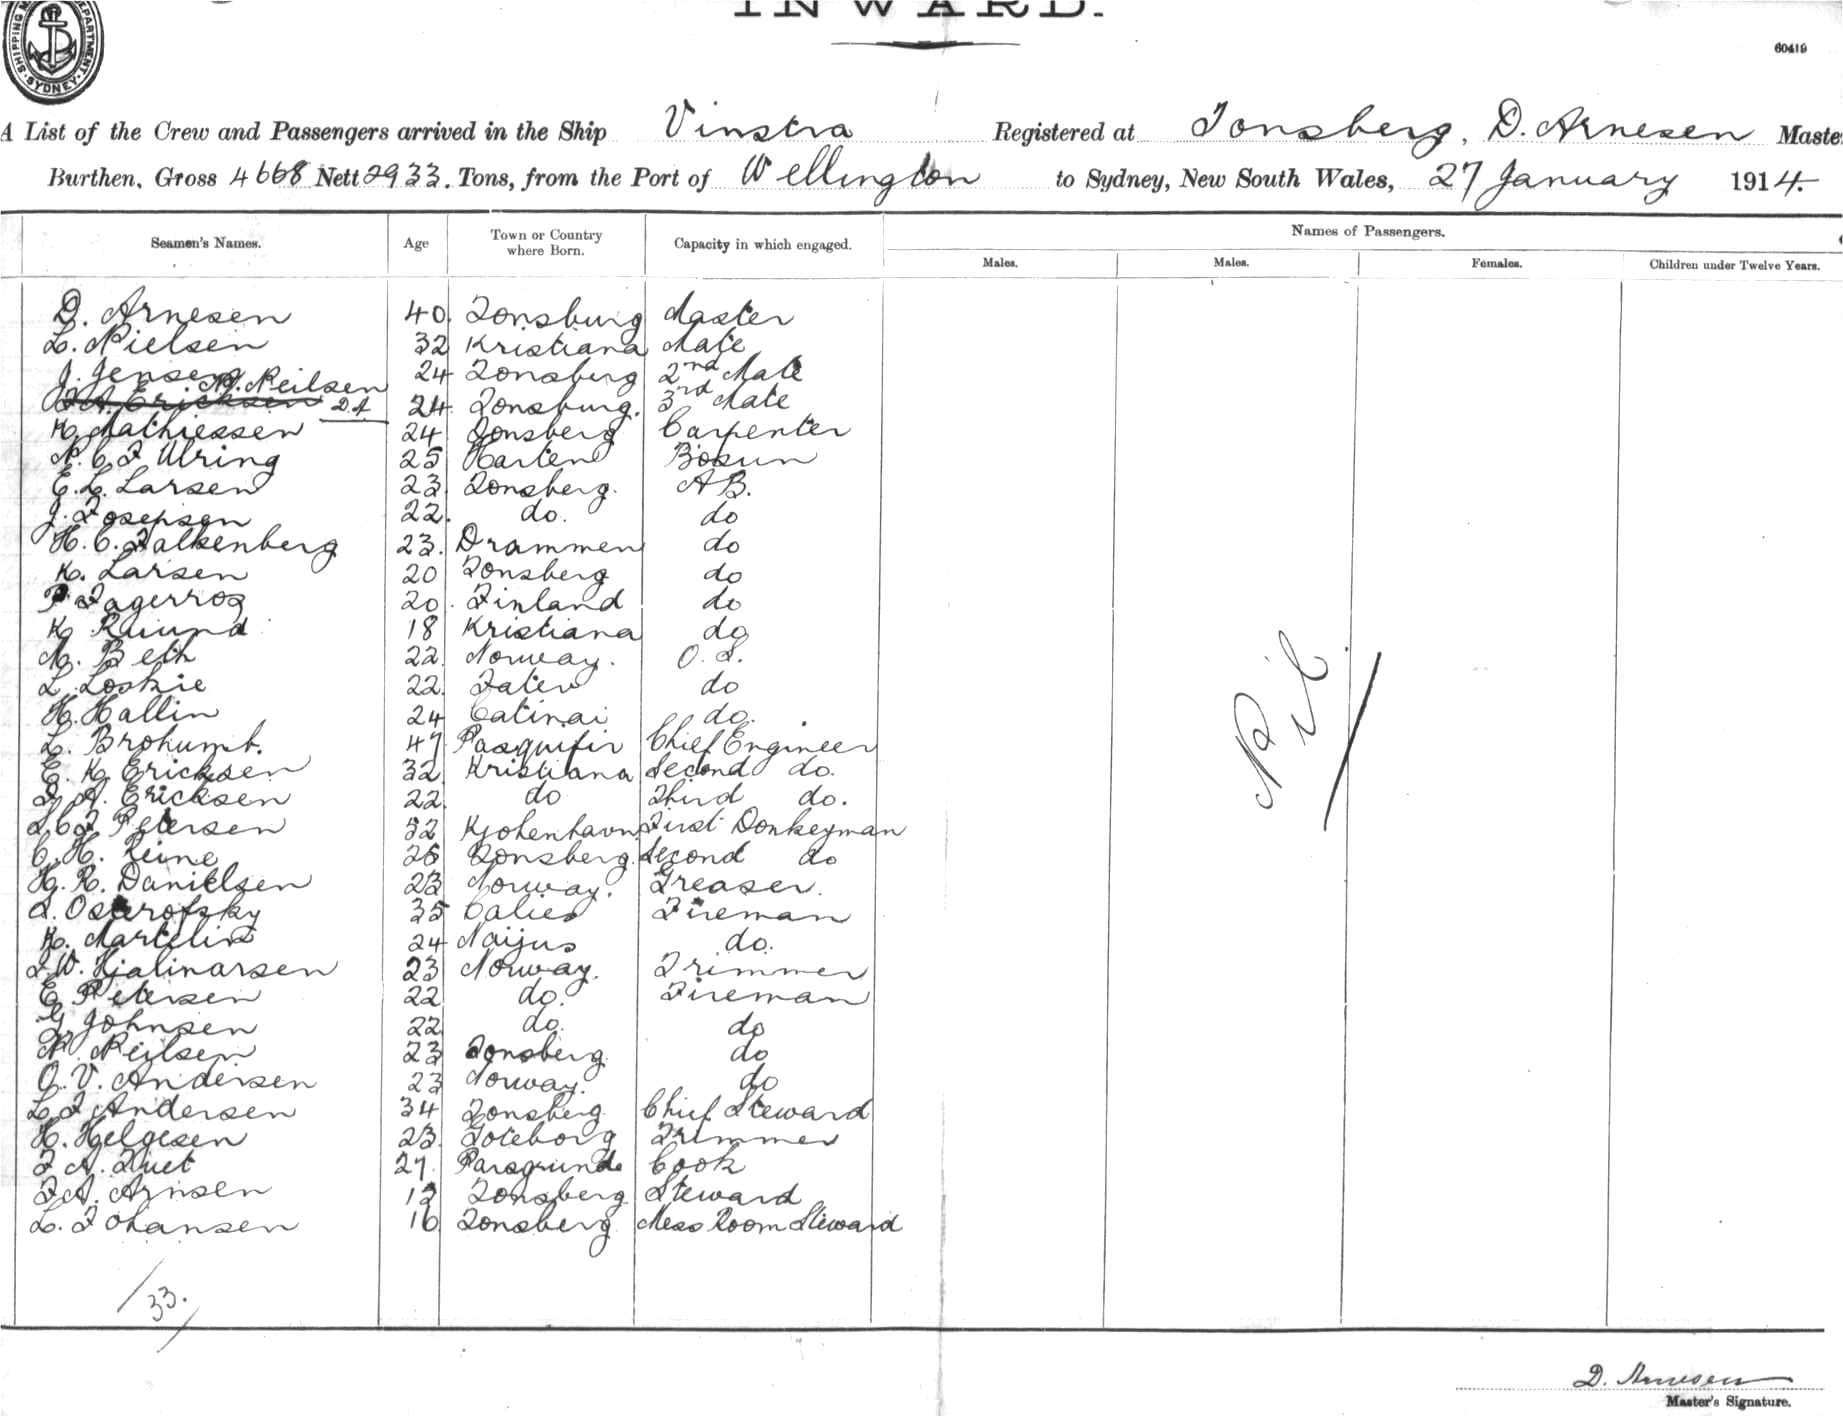 INWARD.
SHIPPING M DEPARTMENT. SYDNEY
60419
A List of the Crew and Passengers arrived in the Ship Vinstra Registered at Tonsberg, D. Arnesen Maste
Burthen, Gross 4668 Nett 2933. Tons, from the Port of Wellington to Sydney, New South Wales, 27 January 1914.
Seamen's Names. Age Town or Country where Born. Capacity in which engaged. Names of Passengers.
Males. Males. Females. Children under Twelve Years.
D. Arnesen 40 Tonsburg Master
L. Nielsen 32 Kristiana Mate
J. Jensen 24 Tonsberg 2nd Mate
N. Neilsen
T A. Ericksen D.A 24 Tonsburg. 3rd Mate
K. Mathiessen 24 Tonsberg Carpenter
N. C. F Ulring 25 Bosun
E. L. Larsen 23 Tonsberg. AB.
J. Josepsen 22. do. do
H. C. Falkenberg 23. Drammen do
K. Larsen 20 Tonsberg do
P. Fagerros 20. Finland do
K. 18 Kristiana do
M. Beth 22 Norway. O.S.
L. Loskie 22 do
H. Hallin 24 Catinai do.
L. 47 Chief Engineer
E. K. Ericksen 32 Kristiana Second do.
T. A. Ericksen 22. do Third do.
L C F Petersen 32 Kjohenhavn First Donkeyman
C. H. Reine 25 Tonsberg. Second do
H. R. Danielsen 23 Norway. Greaser.
35 Fireman
K. Martelin 24 do.
F. W. Hjalinarsen 23 Norway. Trimmer
E Petersen 22 do. Fireman
G. Johnsen 22 do. do
N. Neilsen 23 Tonsberg do
O. V. Andersen 23 Norway. do
L F Andersen 34 Tonsberg Chief Steward
H. Helgesen 23. Goteborg Trimmer
F A. 27. Parsgrund Cook
T A. Arnsen Tonsberg Steward
L. Johansen 16 Tonsberg Mess Room Steward
Nil
33.
D. Arnesen
Master's Signature.